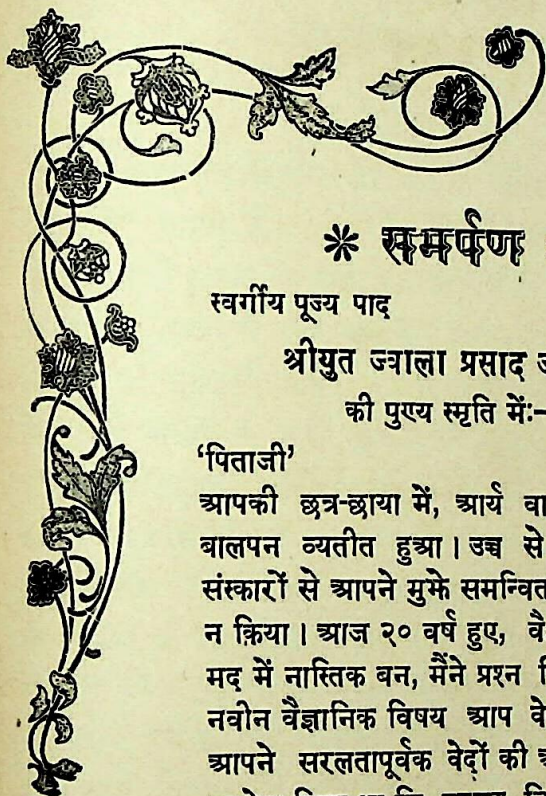 * समर्पण
स्वर्गीय पूज्य पाद
श्रीयुत ज्वाला प्रसाद
की पुण्य स्मृति में:-
'पिताजी'
आपकी छत्र-छाया में, आर्य
बालपन व्यतीत हुआ । उच्च से
संस्कारों से आपने मुझे समन्वित
न किया । आज २० वर्ष हुए,
मद में नास्तिक बन, मैंने प्रश्न
नवीन वैज्ञानिक विषय आप
आपने सरलतापूर्वक वेदों की